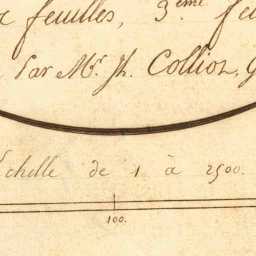 feuilles, 3.eme
Par Mr. Jh. Collioz, G
Echelle de 1 à 2500.
100.